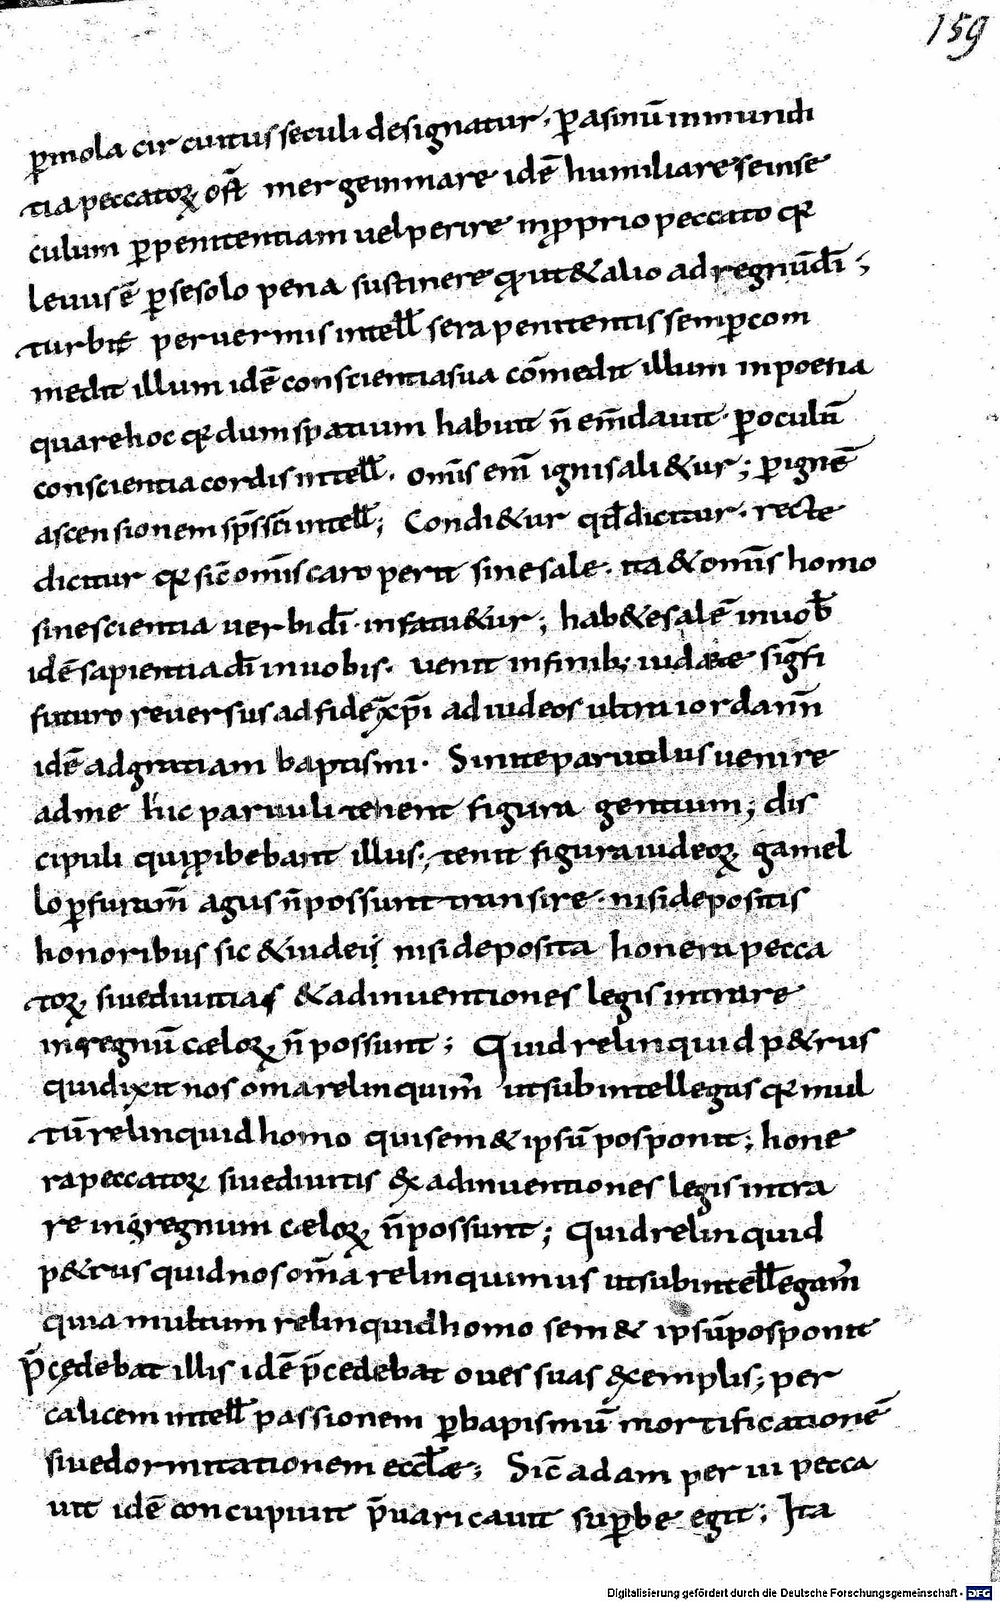 159
ꝑmola circuitus seculi designatur · ꝑasinū inmundi
tia peccatoꝝ ost̄ mergeminare idē humiliare seinse
culum ꝑpenitentiam uel perire inꝓprio peccato qꝛ
leuius ē ꝑsesolo pena sustinere qͣut&alio adregnūdī ;
turbiē per uermis intell̄ sera penitentis semꝑ com
medit illum idē conscientia sua cōmedit illum inpoena
quarehoc qꝛ dum spatium habuit n̄ em̄dauit · ꝑoculū
conscientia cordis intell̄ · om̄is em̄ ignis ali&ur ; ꝑignē
ascensionem sp̄s sc̄i intell̄ ; Condi&ur qd̄ dicitur · recte
dicitur qꝛ sic̄ om̄is caro perit sine sale · ita & om̄is homo
sine scientia uerbi dī · infatu&ur ; hab&e salē inuob̄
idē sapientia dī inuobis · uenit infinib; iudaeae sig̅fi
futuro reuersus ad fidē xp̄i ad iudeos ultra iordann̄
idē ad gratiam baptismi · Sinite paruulus uenire
ad me hic paruuli tenent figura gentium ; dis
cipuli qui ꝓibebant illus ; tenit figura iudeoꝝ gamel
lo ꝑ furam̄ agus n̄ possunt transire · nisi depositis
honoribus sic & iudeij nisi deposita honera pecca
toꝝ siue diuitias & adinuentiones legis intrare
in regnū caeloꝝ n̄ possunt ; Quid relinquid p&rus
qui dixit nos om̄a relinquim̄ ut subintellegas qꝛ mul
tū relinquid homo qui sem& ipsū posponit ; hone
ra peccatoꝝ siue diuitis & adinuentiones legis intra
re in regnum caeloꝝ n̄ possunt ; Quid relinquid
p&rus quid nos om̄a relinquimus ut subintell̄egam̄
quia multum relinquid homo sem& ipsū posponit
p̄cedebat illis idē p̄cedebat oues suas exemplis ; per
calicem intell̄ passionem ꝑ bapismū mortificationē
siue dormitationem eccl̄ae ; Sic̄ adam per iii pecca
uit idē concupiuit p̄uaricauit suꝑbe egit ; Ita
Digitalisierung gefördert durch die Deutsche Forschungsgemeinschaft - DFG